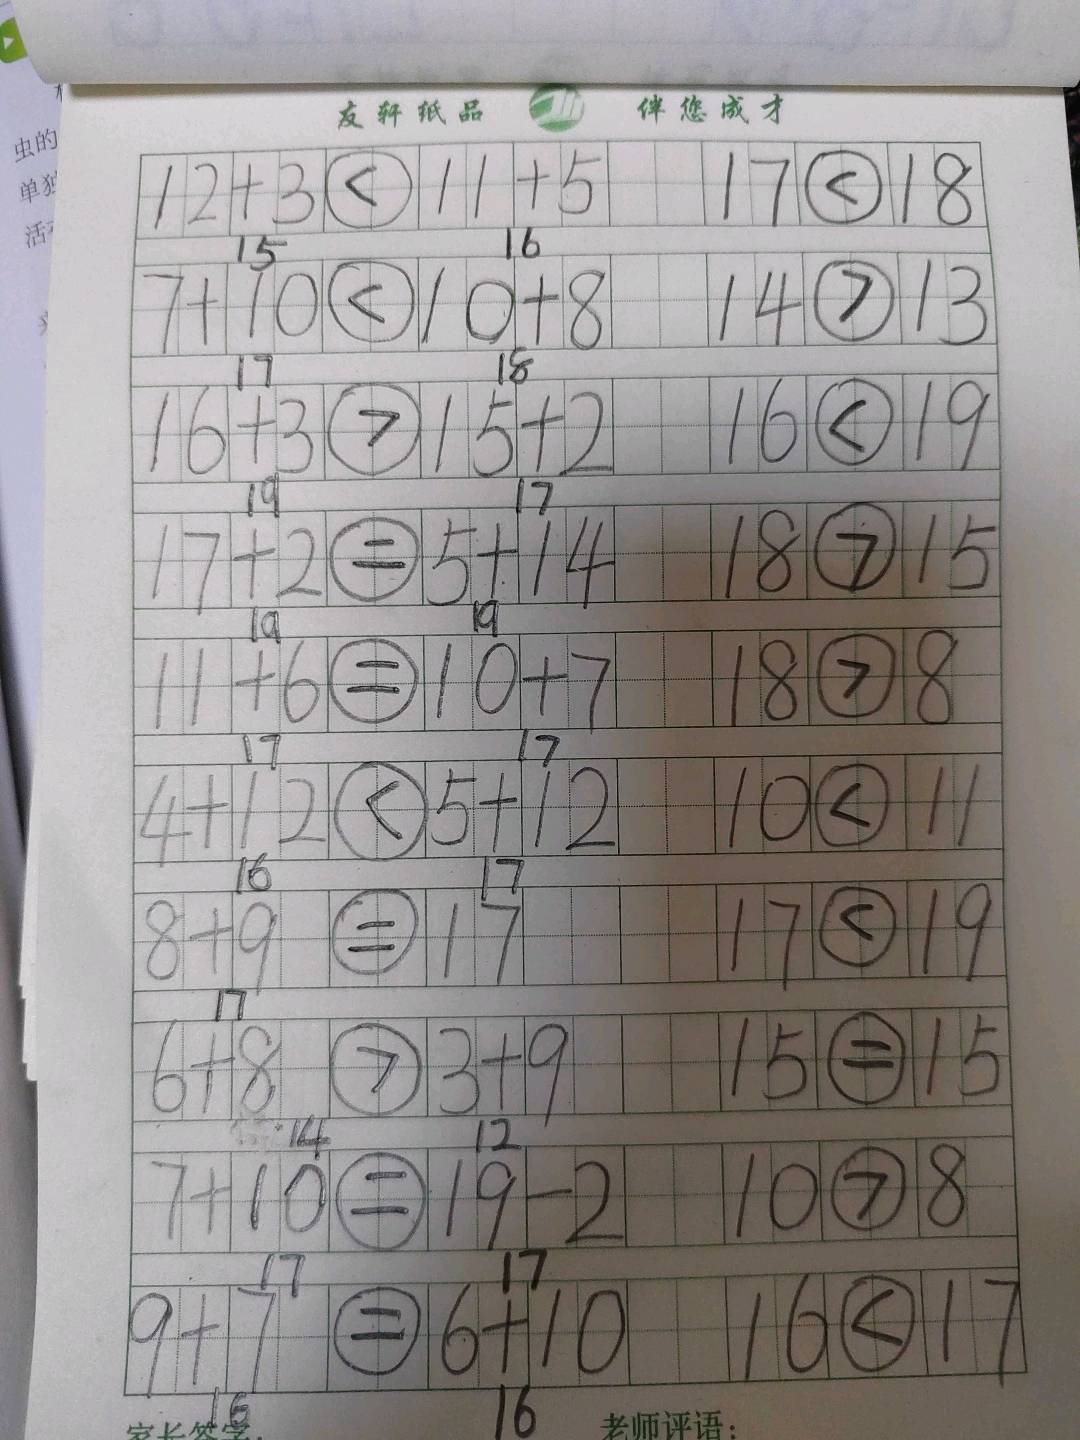 友轩纸品 伴您成才
虫的
单独
12+3 < 11+5 17 < 18
15 16
7+10 < 10+8 14 > 13
17 18
16+3 > 15+2 16 < 19
19 17
17+2 = 5+14 18 > 15
19 19
11+6 = 10+7 18 > 8
17 17
4+12 < 5+12 10 < 11
16 17
8+9 = 17 17 < 19
17
6+8 > 3+9 15 = 15
14 12
7+10 = 19-2 10 > 8
17 17
9+7 = 6+10 16 < 17
16 16
家长签字: 老师评语: